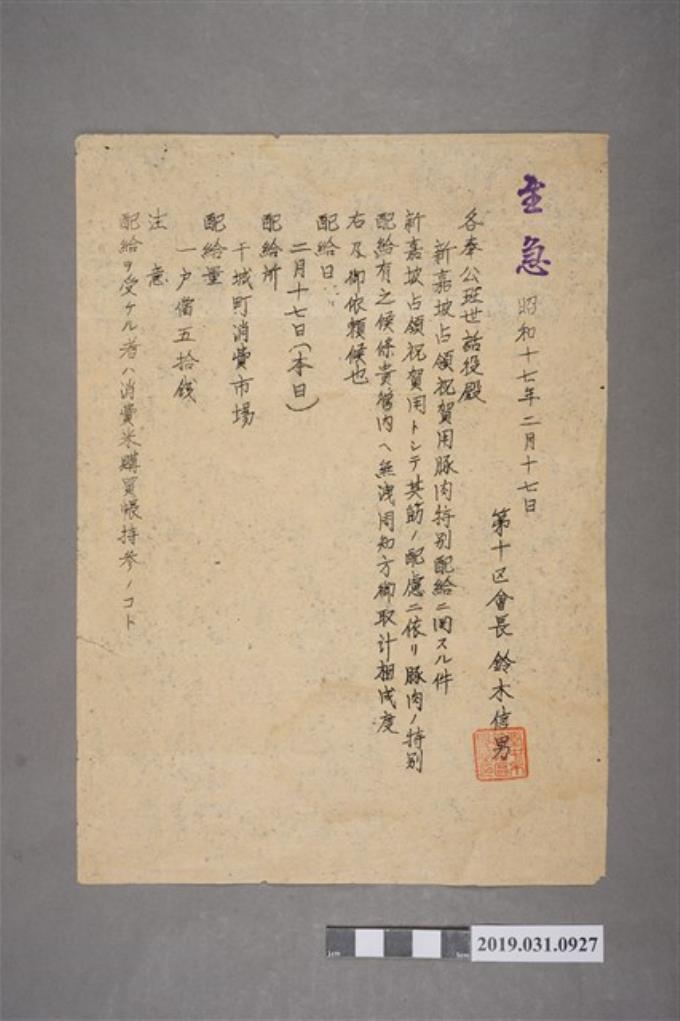 至急
昭和十七年二月十七日
第十区會長 鈴木信男
各奉公班世話役殿
新嘉坡占領祝賀用豚肉特別配給ニ関スル件
新嘉坡占領祝賀用トシテ其筋ノ配慮ニ依リ豚肉ノ特別
配給有之候條貴管内ヘ無洩周知方御取計相成度
右及御依頼候也
配給日
二月十七日(本日)
配給所
干城町消費市場
配給量
一戸當五拾銭
注意
配給ヲ受ケル者ハ消費米購買帳持参ノコト
1cm
5cm
2019.031.0927